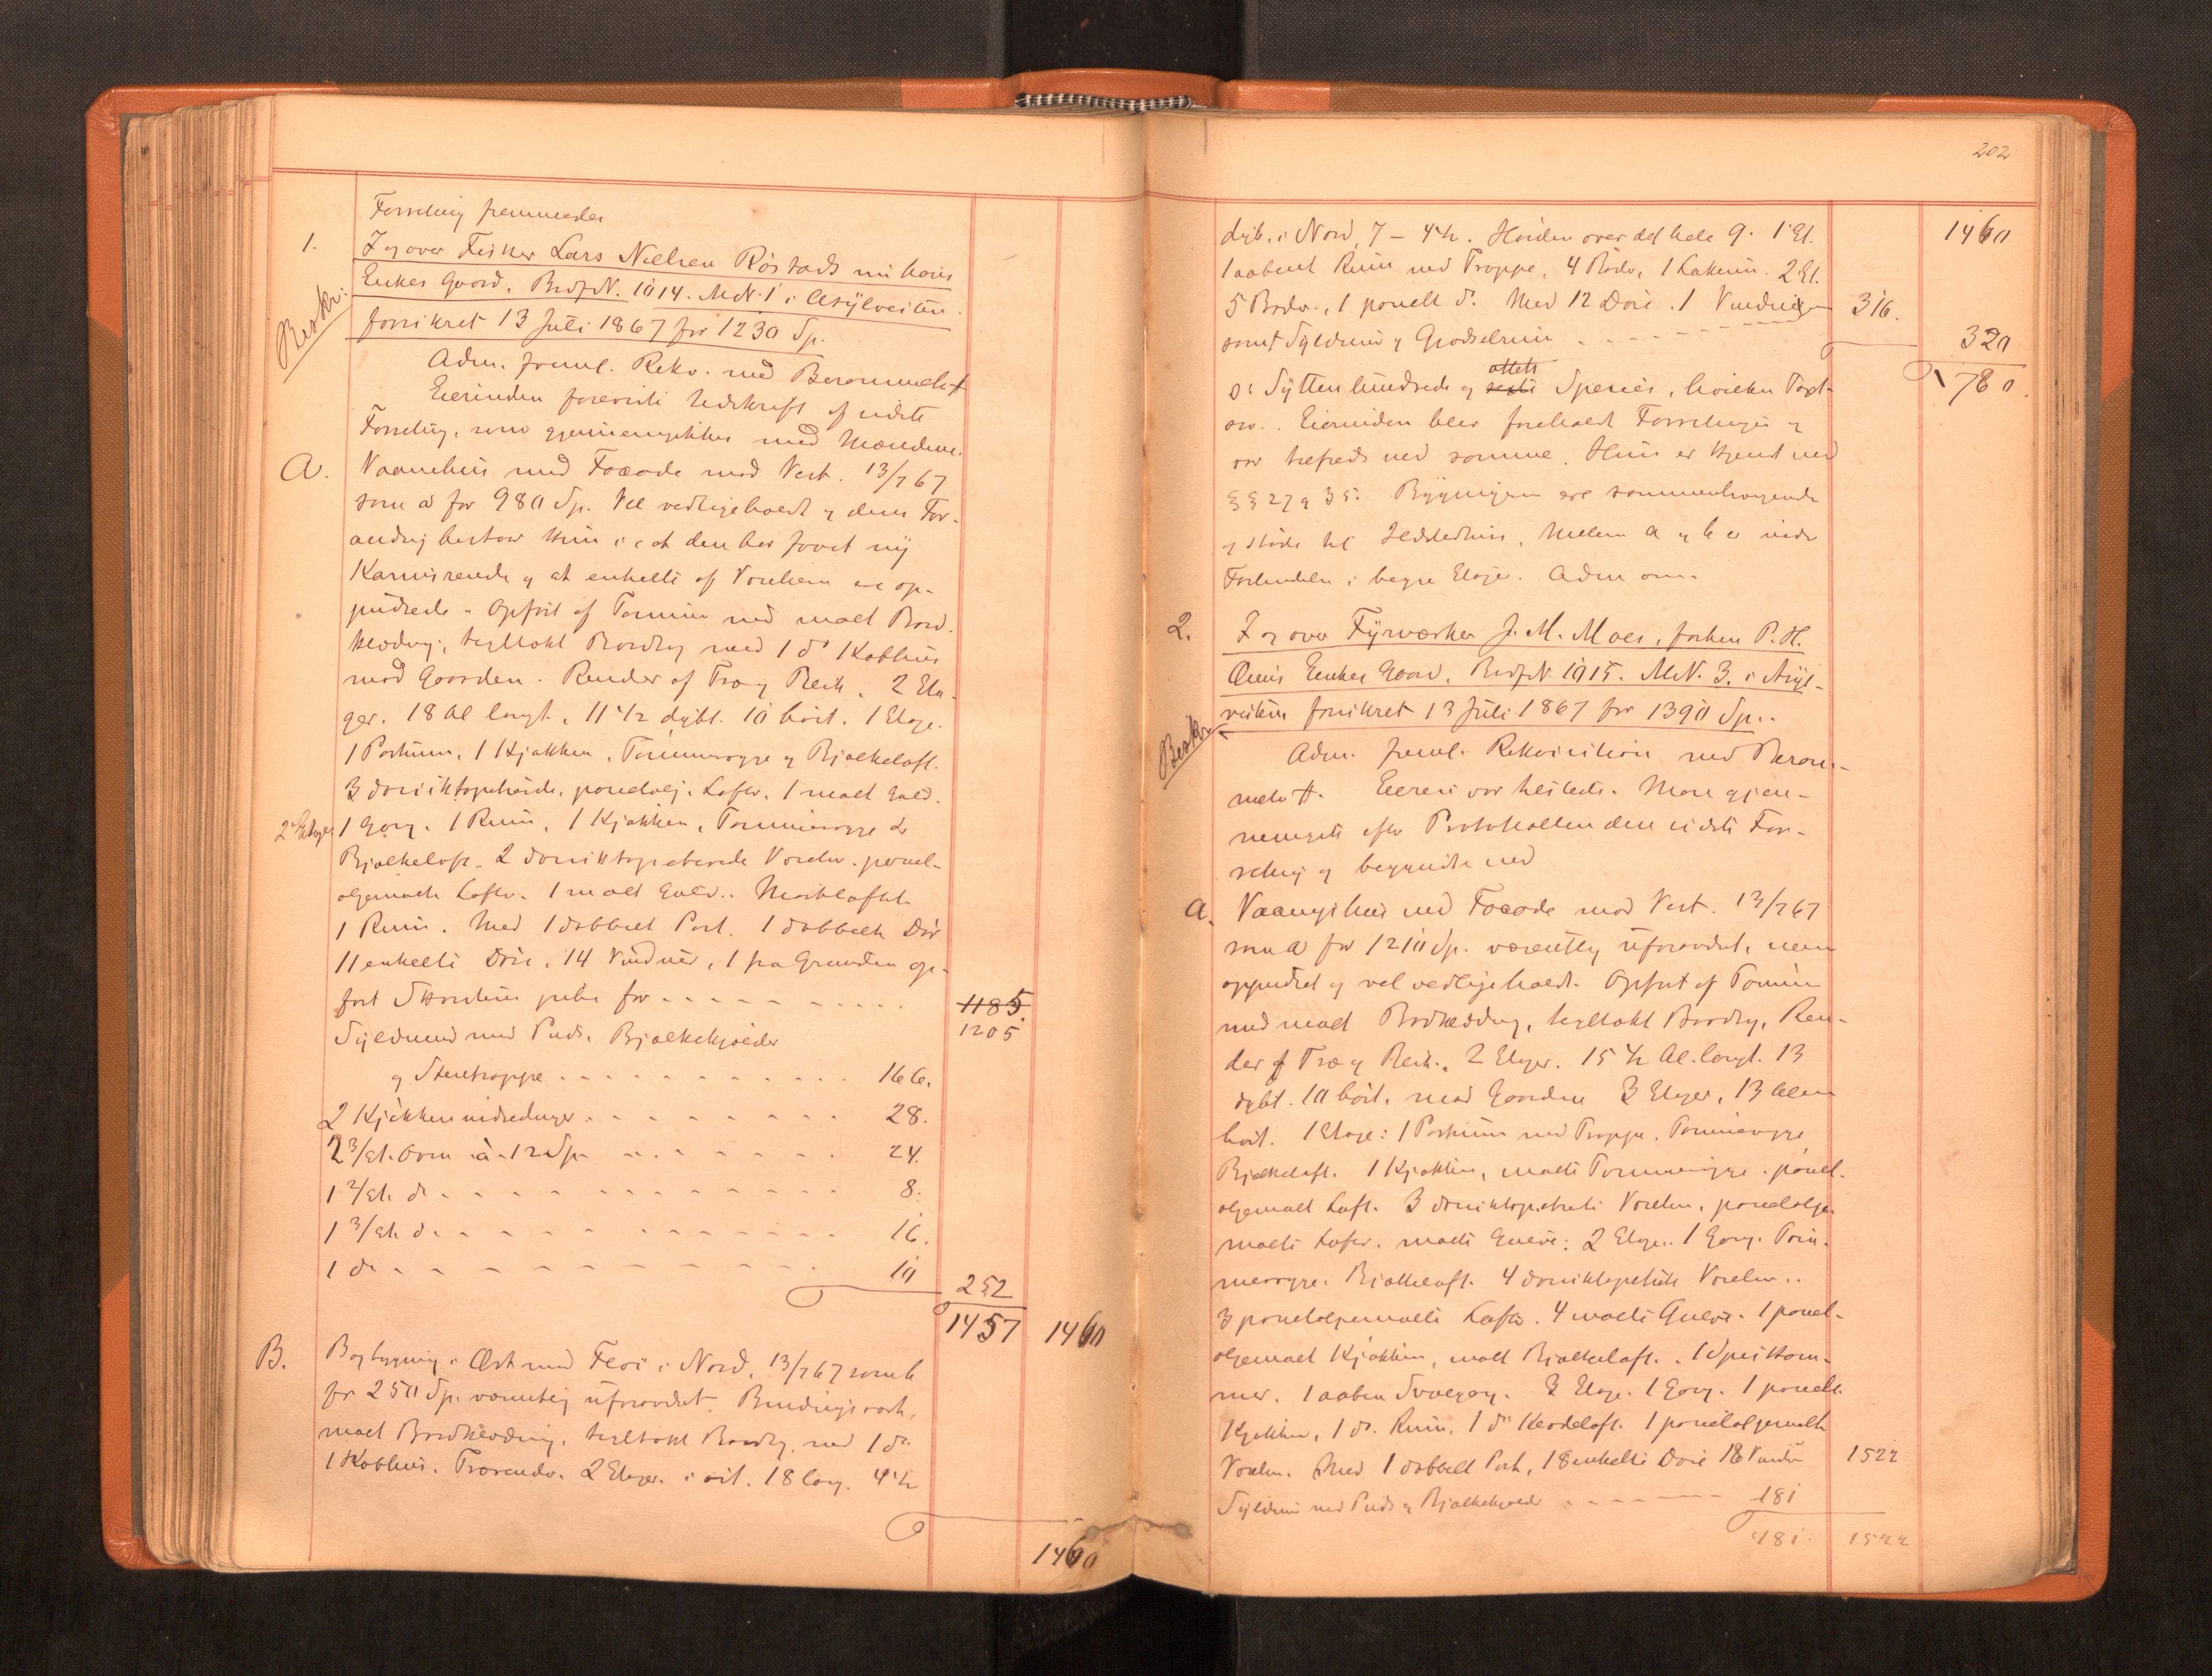 Forretning fremmedes
1. I og over Fisker Lars Nielsen Röstads nu hans
Enkes Gaard, BrdfN. 1014. MN. 1 i Asÿlveiten
forsikret 13 Juli 1867 for 1230 Sp.
Beskr:
Adm. freml. Rekv. med Berammelse
Eierinden foreviste Udskrift af sidste
Forretning, som gjennemgikkes med Mændene.
A. Vaanehus med Facade mod Vest. 13/7 67
som a for 980 Sp. Vel vedligeholdt og dens For-
andring bestaar kun i at den har faaet nÿ
Karnisrende og at enkelte af Værelserne ere op-
pudsede. Opfört af Tömmer med malt Bord-
klædning, tegltækt Bordtag med 1 do Kobhus
mod Gaarden. Render af Træ og Blik. 2 Eta-
ger. 18 Al langt. 11 1/2 dybt. 10 höit. 1 Etage.
1 Portrum, 1 Kjøkken, Tömmervægge og Bjælkeloft.
3 Værelser, panelolj. Lofter, 1 malt Gulv.
2 Etage 1 Gang. 1 Rum, 1 Kjøkken, Tömmervægge &
Bjælkeloft. 2 Værelser. panel-
oljemalte Lofter. 1 malt Gulv. Mørkloftet
1 Rum. Med 1 dobbelt Port. 1 dobbelt Dör
11 enkelte Döre, 14 Vinduer, 1 fra Grunden op-
fört Skorsten pibe for - - - - - 1185.
1205
Syldmur med Puds. Bjælkekjælder
og Stentrappe - - - - - 166.
2 Kjøkkenindredninger - - - - - 28.
2 3/Et. Ovne à 12 Sp. - - - - - 24.
1 2/Et. do - - - - - 8.
1 3/Et. do - - - - - 16.
1 do - - - - - 10
252
1457 1460
B. Bagbygning i Öst med Flöi i Nord, 13/7 67 som b
for 250 Sp. væsentlig uforandret. Bindingsværk,
malt Bordklædning, tegltækt Bordtag med 1 do
1 Kobhus. Trærender. 2 Etager. i öst. 18 lang. 4 1/2
1460
202
dyb. i Nord, 7 - 4 1/2. Höiden over det hele 9. 1 Et.
1 aabent Rum med Trappe, 4 Boder, 1 Lokum. 2 Et.
5 Boder, 1 panelt do. Med 12 Döre. 1 Vindue
samt Syldmur og Grødselrum - - - - 316.
1460
320
1780.
o: Sÿttenhundrede og sexti otteti Species, hvilken Taxt
osv. Eierinden blev foreholdt Forretningen og
var tilfreds med samme. Hun er kjendt med
§§ 27 og 35. Bÿgningerne ere sammenhængende
og støde til . Mellem a og b er indre
Forbindelse i begge Etager. Adm om.
2. I og over Fÿrværker J. M. Moes, forhen P. H.
Enkes Gaard, BrdfN. 1015. MN. 3. i Asÿl-
veiten forsikret 13 Juli 1867 for 1390 Sp.
Beskr.
Adm. freml. Rekvisition med Beram-
melse. Eieren var tilstede. Man gjen-
nemgik efter Protokollen den sidste For-
retning og begyndte med
a. Vaaningshus med Facade mod Vest. 13/7 67
som a for 1210 Sp. væsentlig uforandret, men
oppudset og vel vedligeholdt. Opført af Tömmer
med malt Bordklædning, tegltækt Bordtag, Ren-
der af Træ og Blik. 2 Etager. 15 1/2 Al. langt. 13
dybt. 10 höit. mod Gaarden 3 Etager, 13 Alen
höit. 1 Etage: 1 Portrum med Trappe. Tömmervægge
Bjælkeloft. 1 Kjøkken, malte Tömmervægge. panel-
oljemalt Loft. 3 Værelser, panelolje-
malte Lofter. malte Gulve. 2 Etage. 1 Gang. Töm-
mervægge. Bjælkeloft. 4 Værelser.
3 paneloljemalte Lofter. 4 malte Gulve. 1 panel-
oljemalt Kjøkken, malt Bjælkeloft. 1 Spiskam-
mer. 1 aaben Svalgang. 3 Etage. 1 Gang. 1 panelt
Kjøkken, 1 do. Rum. 1 do Klædeloft. 1 paneloljemalt
Værelse. Med 1 dobbelt Port, 18 enkelte Döre 18 Vinduer 1522
Syldmur med Puds og Bjælkekjælder - - - - 181
181. 1522